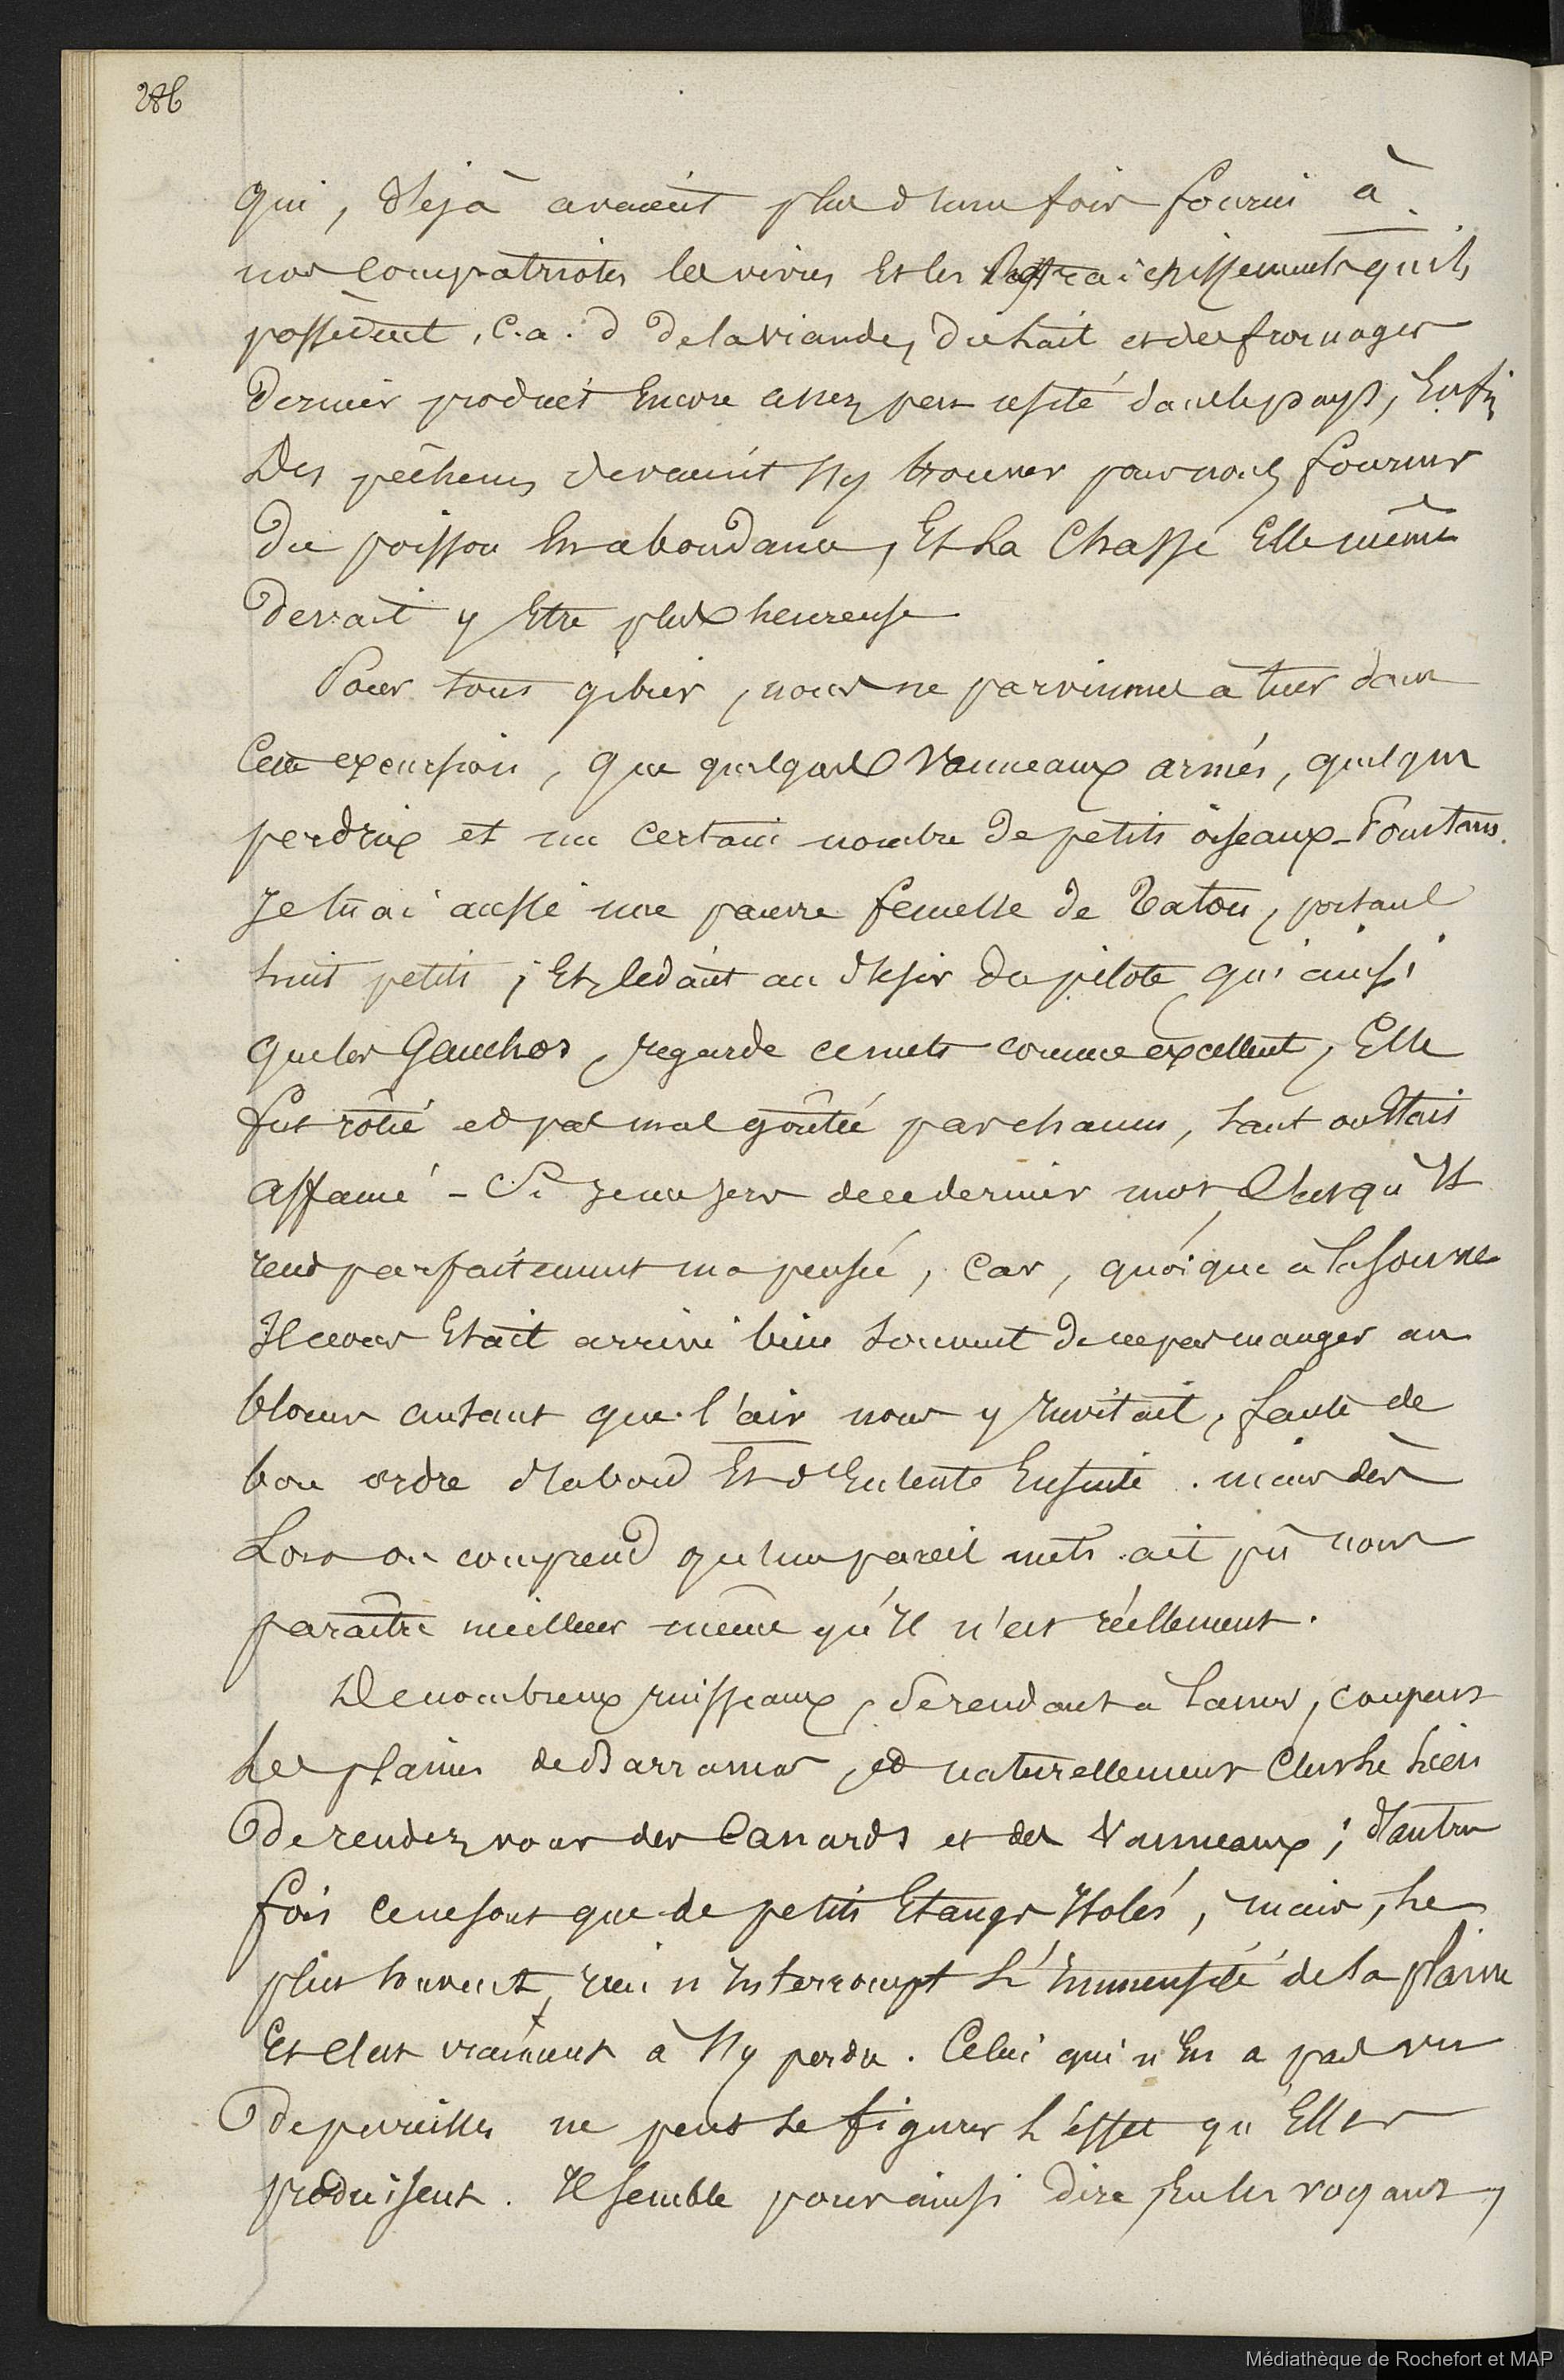 286
qui, dejà avaient plus d'une fois fourni à
nos compatriotes les vivres et les Raffraichissements qu'ils
possèdent, c.a.d de la viande, du lait et des fromages
dernier produit encore assez peu usité dans le pays, Enfin
des pêcheurs devaient s'y trouver pour nous fournir
du poisson en abondance, Et la Chasse Elle même
devait y Etre plus heureuse
Pour tous gibier, nous ne parvinmes à tuer dans
Cette excursion, que quelques Vanneaux armés, quelques
perdrix et un certain nombre de petits oiseaux
Je tuai aussi une pauvre femelle de Tatou, portant
huit petits ; Et, cédant au désir du pilote qui ainsi
que les Gauchos, regarde ce mets comme excellent, Elle
fut rôtie et pas mal goûtée par chacun, tant on Etais
affamé - Si je me sers de ce dernier mot, C'est qu'il
rend parfaitement ma pensée, Car, quoique à la source
Il nous Etait arrivé bien souvent de ne pas manger au
blocus autant que l'air nous y invitait, faute de
bon ordre d'abord Et d'Entente Ensuite . mais dès
Lors on comprend qu'un pareil mets ait pû nous
paraître meilleur même qu'Il n'est réellement.
De nombreux ruisseaux, se rendant à la mer, coupent
les plaines de et naturellement C'est le lieu
de rendez vous des Canards et des Vanneaux ; d'autres
fois ce ne sont que de petits Etangs Isolés, mais, le
plus souvent, rien n'Interrompt l'Immensité de la plaine
Et c'est vraiment à s'y perdre. Celui qui n'En a pas vu
de pareilles ne peut se figurer l'effet qu'Elles
produisent. Il semble pour ainsi dire, En les voyant,
Médiathèque de Rochefort et MAP